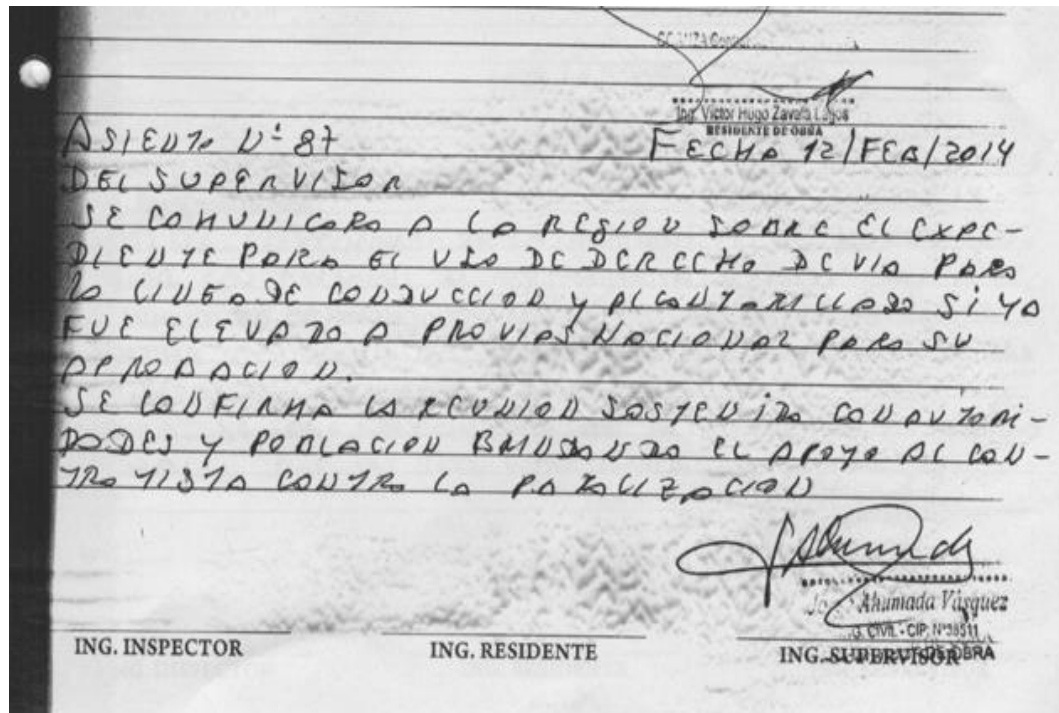 Ing. Victor Hugo Zavala Lagos
RESIDENTE DE OBRA
ASIENTO N° 87 FECHA 12/FEB/2014
DEL SUPERVISOR
SE COMUNICARA A LA REGION SOBRE EL EXPE-
DIENTE PARA EL USO DE DERECHO DE VIA PARA
LA LINEA DE CONDUCCION Y ALCANTARILLADO SI YA
FUE ELEVADO A PROVIAS NACIONAL PARA SU
APROBACION.
SE CONFIRMA LA REUNION SOSTENIDA CON AUTORI-
DADES Y POBLACION BRINDANDO EL APOYO AL CON-
TRATISTA CONTRA LA PARALIZACION
Ahumada Vásquez
CIVIL - CIP. N°38511
ING. INSPECTOR ING. RESIDENTE ING. SUPERVISOR